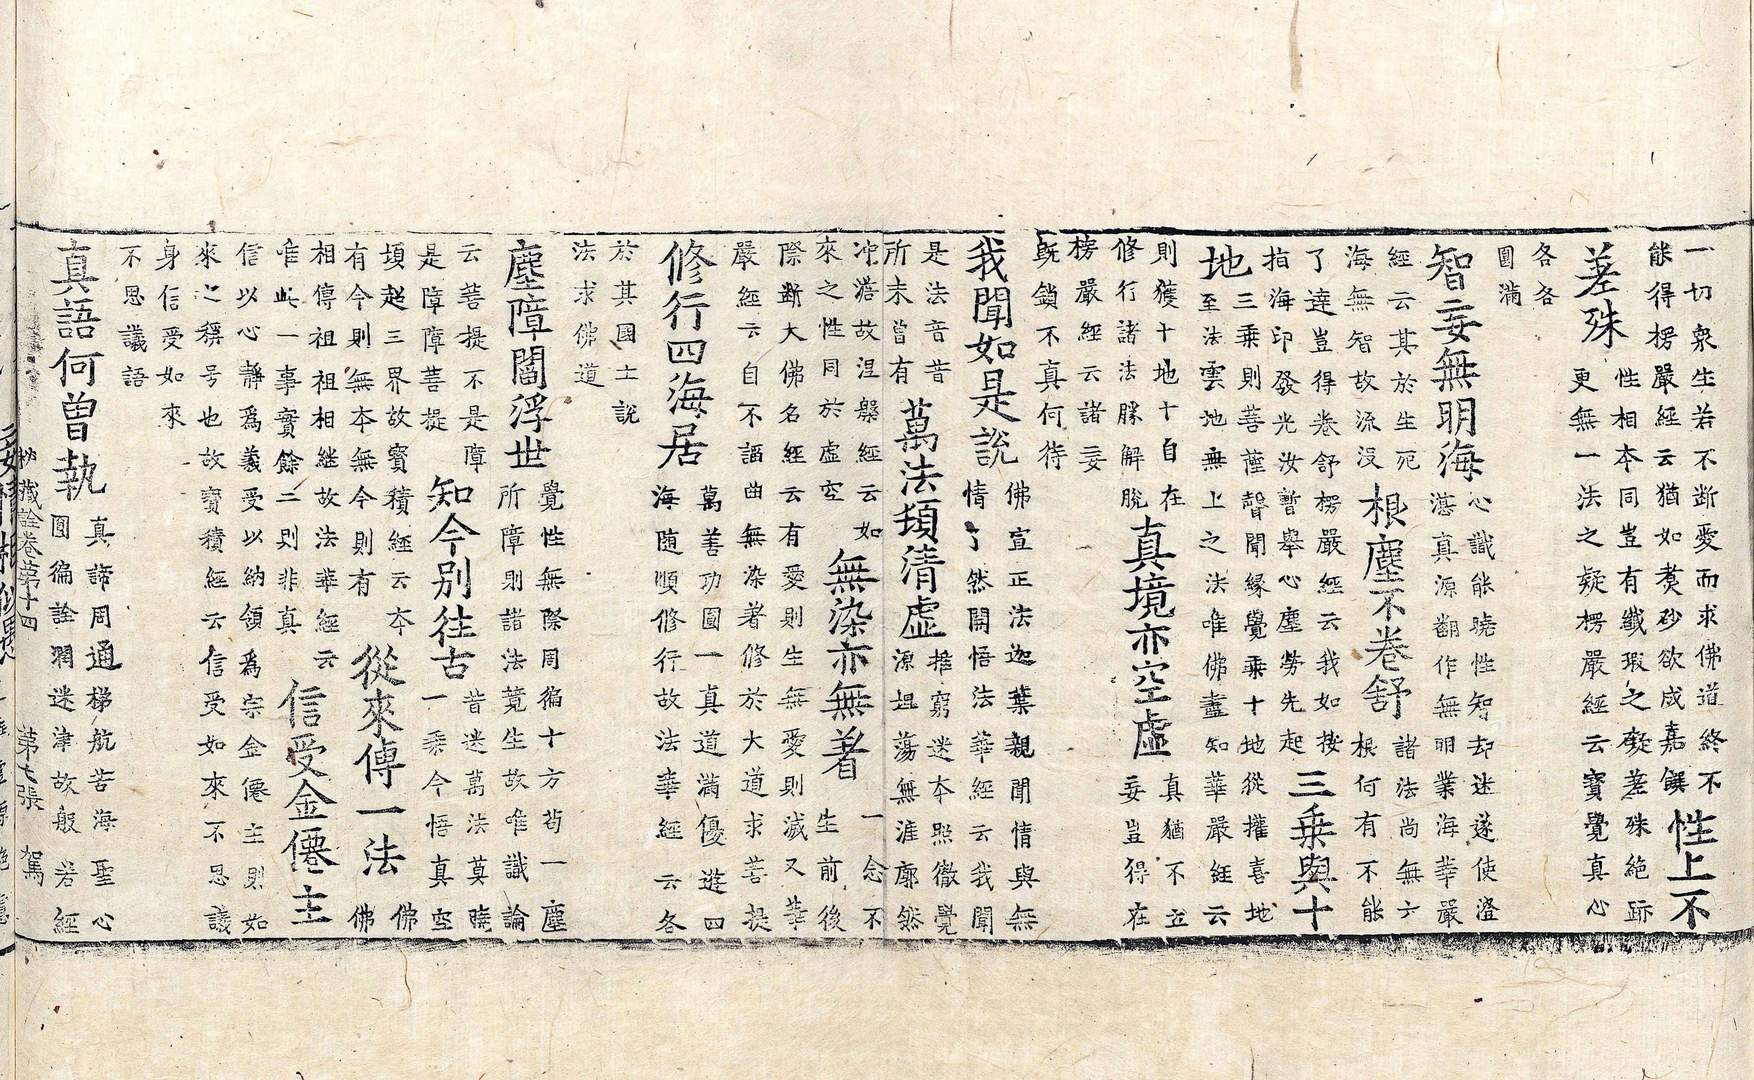 一切衆生若不斷愛而求佛道終不
能得楞嚴經云猶如煑砂欲成嘉饌
性上不
差殊
性相本同豈有纖瑕之礙差殊絕跡
更無一法之疑楞嚴經云寶覺真心
各各
圓滿
智妄無明海
心識能曉性智却迷遂使澄
湛真源翻作無明業海華嚴
經云其於生死
海無智故流没
根塵不卷舒
諸法尚無六
根何有不能
了達豈得卷舒楞嚴經云我如按
指海印發光汝暫舉心塵勞先起
三乗與十
地
三乗則菩薩聲聞緣覺乗十地從權喜地
至法雲地無上之法唯佛盡知華嚴經云
則獲十地十自在
修行諸法勝解脫
真境亦空虛
真猶不立
妄豈得在
楞嚴經云諸妄
旣鎖不真何待
我聞如是說
佛宣正法迦葉親聞情與無
情了然開悟法華經云我聞
是法音昔
所未曾有
萬法頓清虛
推窮迷本照徹覺
源坦蕩無涯廓然
冲澹故涅槃經云如
來之性同於虛空
無染亦無著
一念不
生前後
際斷大佛名經云有愛則生無愛則滅又華
嚴經云自不謟曲無染著修於大道求菩提
修行四海居
萬善功圓一真道滿優遊四
海随順修行故法華經云各
於其國土說
法求佛道
塵障閻浮世
覺性無際周徧十方茍一塵
所障則諸法竟生故唯識論
云菩提不是障
是障障菩提
知今別往古
昔迷萬法莫曉
一乗今悟真空
頃起三界故寳積經云本
有今則無本無今則有
從來傳一法
佛
佛
相傳祖祖相継故法華經云
唯此一事實餘二則非真
信受金僊主
信以心靜爲義受以納領爲宗金僊主則如
來之稱号也故寳積經云信受如來不思議
身信受如來
不思議語
真語何曾執
真諦周通梯航苦海聖心
圓徧詮溺迷津故般若經
秘藏詮卷第十四 第七張 駕